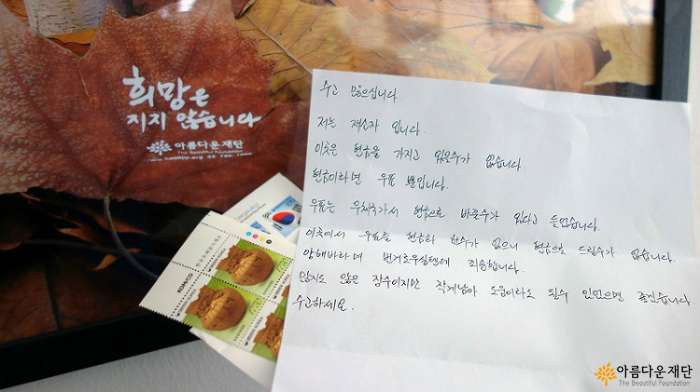 희망은
지지 않습니다
아름다운재단
The Beautiful Foundation
수고 많으십니다
저는 재소자 입니다.
이곳은 현금을 가지고 있을수가 없습니다.
현금이라면 우표 뿐입니다.
우표는 우체국가서 현금으로 바꿀수가 있다고 들었습니다.
이곳에서 우표를 현금화 할수가 없으니 현금으로 드릴수가 없습니다.
양해바라며 번거로우실텐데 죄송합니다.
많지도 않은 장수이지만 작게남아 도움이라도 될수 있었으면 좋겠습니다
수고하세요.
KOREA
아름다운재단
The Beautiful Foundation